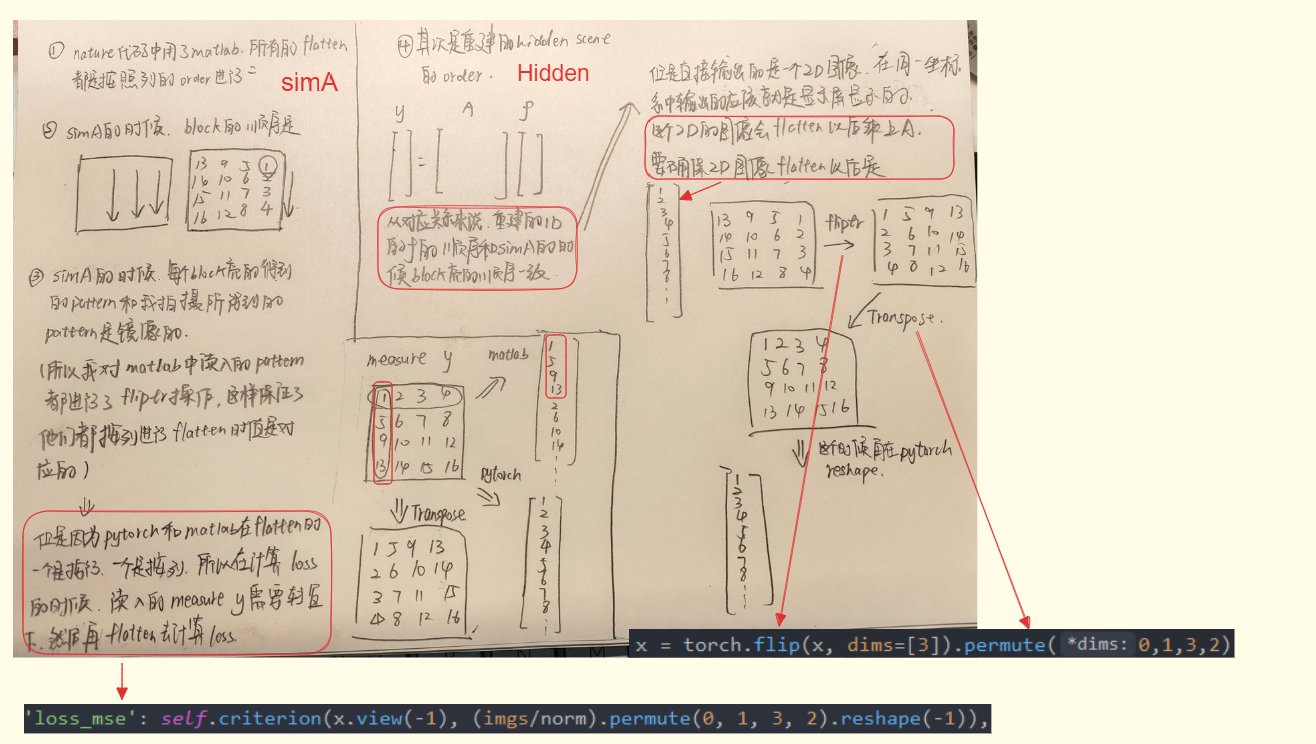 ① nature代码中用了matlab.所有的flatten
都是按照列的order进行
simA
② simA的时候, block的顺序是
13 9 5 1
10 6 2
15 11 7 3
16 12 8 4
③ simA的时候,每个block底的得到
的pattern和我拍摄所得到的
pattern是镜像的.
(所以我对matlab中读入的pattern
都进行了fliplr操作,这样保证了
他们都按列进行flatten时值是对
应的)
但是因为pytorch和matlab在flatten的
一个是按行,一个是按列.所以在计算loss
的时候,读入的measure y需要转置
下.然后再flatten去计算loss.
④ 其次是重建的hidden scene
的order.
Hidden
y A ρ
[ ] = [ ] [ ]
从对应关系来说,重建的1D
的ρ的顺序和simA的的时
候block底的顺序一致.
measure y
matlab
1 2 3 4
5 6 7 8
9 10 11 12
13 14 15 16
1
5
9
13
2
6
10
14
⋮
pytorch
Transpose
1 5 9 13
2 6 10 14
3 7 11 15
4 8 12 16
1
2
3
4
5
6
7
8
⋮
但是直接输出的是一个2D图像.在同一坐标
系中输出的应该就是显示屏显示的ρ.
这个2D的图像会flatten以后乘上A.
要确保2D图像flatten以后是
1
2
3
4
5
6
7
8
⋮
13 9 5 1
14 10 6 2
15 11 7 3
16 12 8 4
fliplr
1 5 9 13
2 6 10 14
3 7 11 15
4 8 12 16
Transpose.
1 2 3 4
5 6 7 8
9 10 11 12
13 14 15 16
这个时候再在pytorch
reshape.
1
2
3
4
5
6
7
8
⋮
x = torch.flip(x, dims=[3]).permute( *dims: 0,1,3,2)
'loss_mse': self.criterion(x.view(-1), (imgs/norm).permute(0, 1, 3, 2).reshape(-1)),